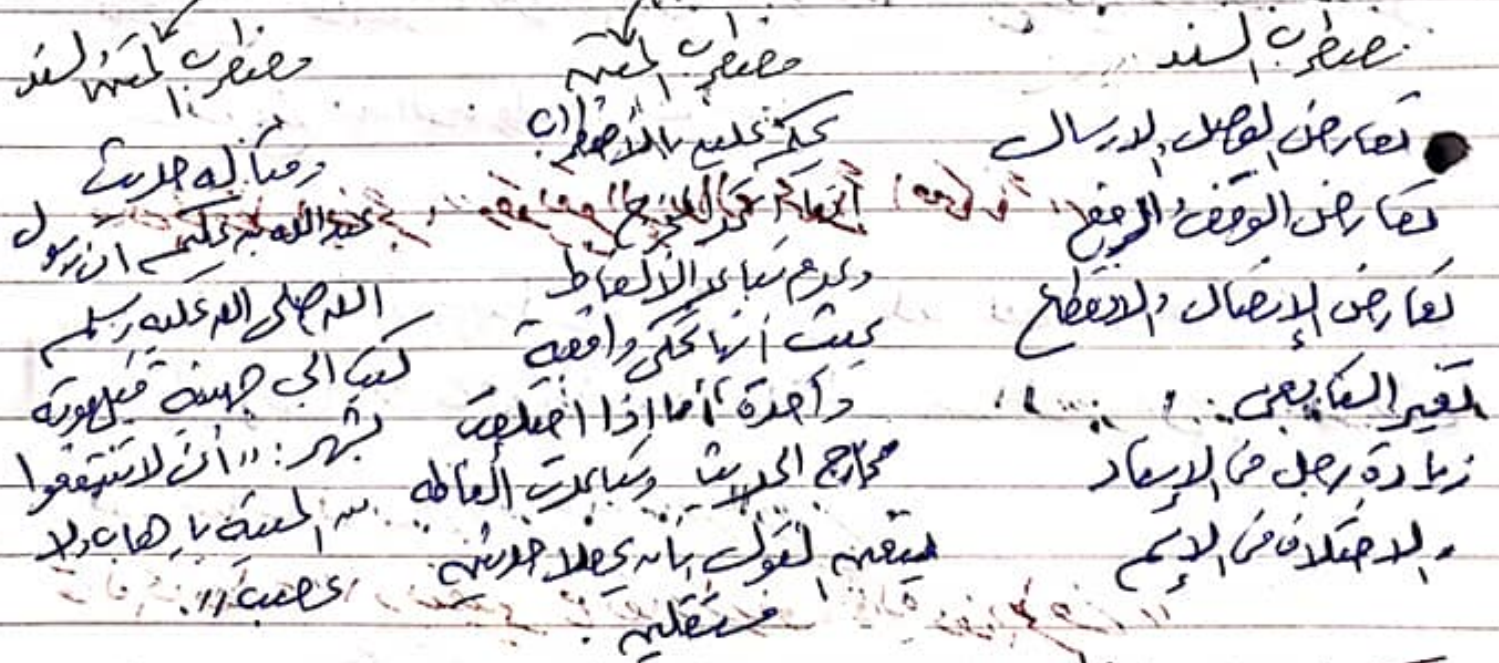 مضطرب السند
تعارض الوصل والارسال
تعارض الوقف والرفع
تعارض الإتصال والانقطاع
تغير التابعي
زيادة رجل في الإسناد
والاختلاف في الإسم
مضطرب المتن
يحكم عليه بالاضطراب
اتحاد المخرج
وعدم تباعد الالفاظ
بحيث أنها تحكي واقعة
واحدة، أما إذا اختلفت
مخارج الحديث وتباعدت الفاظه
فيتعين القول بأن يجعلا حديثين
مستقلين.
مضطرب المتن والسند
ومثاله حديث
عبد الله بن عكيم ان رسول
الله صلى الله عليه وسلم
كتب الى جهينة قبل موته
بشهر: "ان لا تنتفعوا
من الميتة بإهاب ولا
عصب".